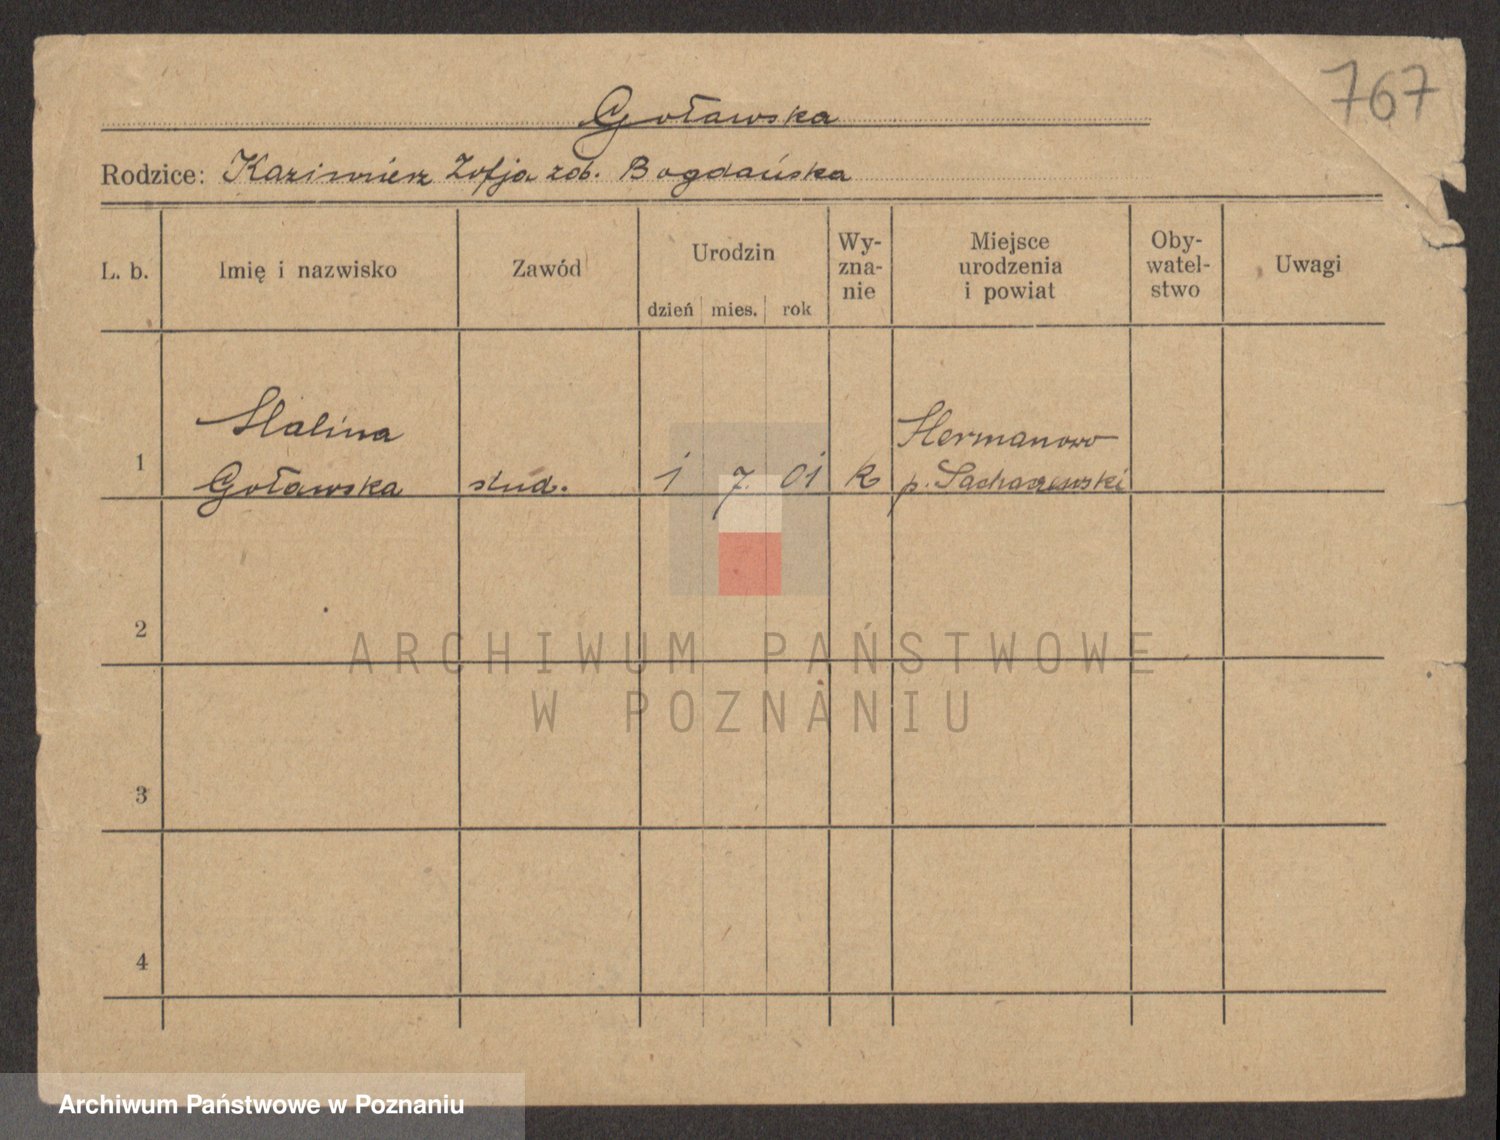 767
Goławska
Rodzice: Kazimierz Zofja zob. Bogdańska
L. b. Imię i nazwisko Zawód Urodzin dzień mies. rok Wy-zna-nie Miejsce urodzenia i powiat Oby-watel-stwo Uwagi
Halina Hermanowo
1 Goławska stud. 1 7. 01 k p. Sochaczewski
2
ARCHIWUM PAŃSTWOWE
W POZNANIU
3
4
Archiwum Państwowe w Poznaniu